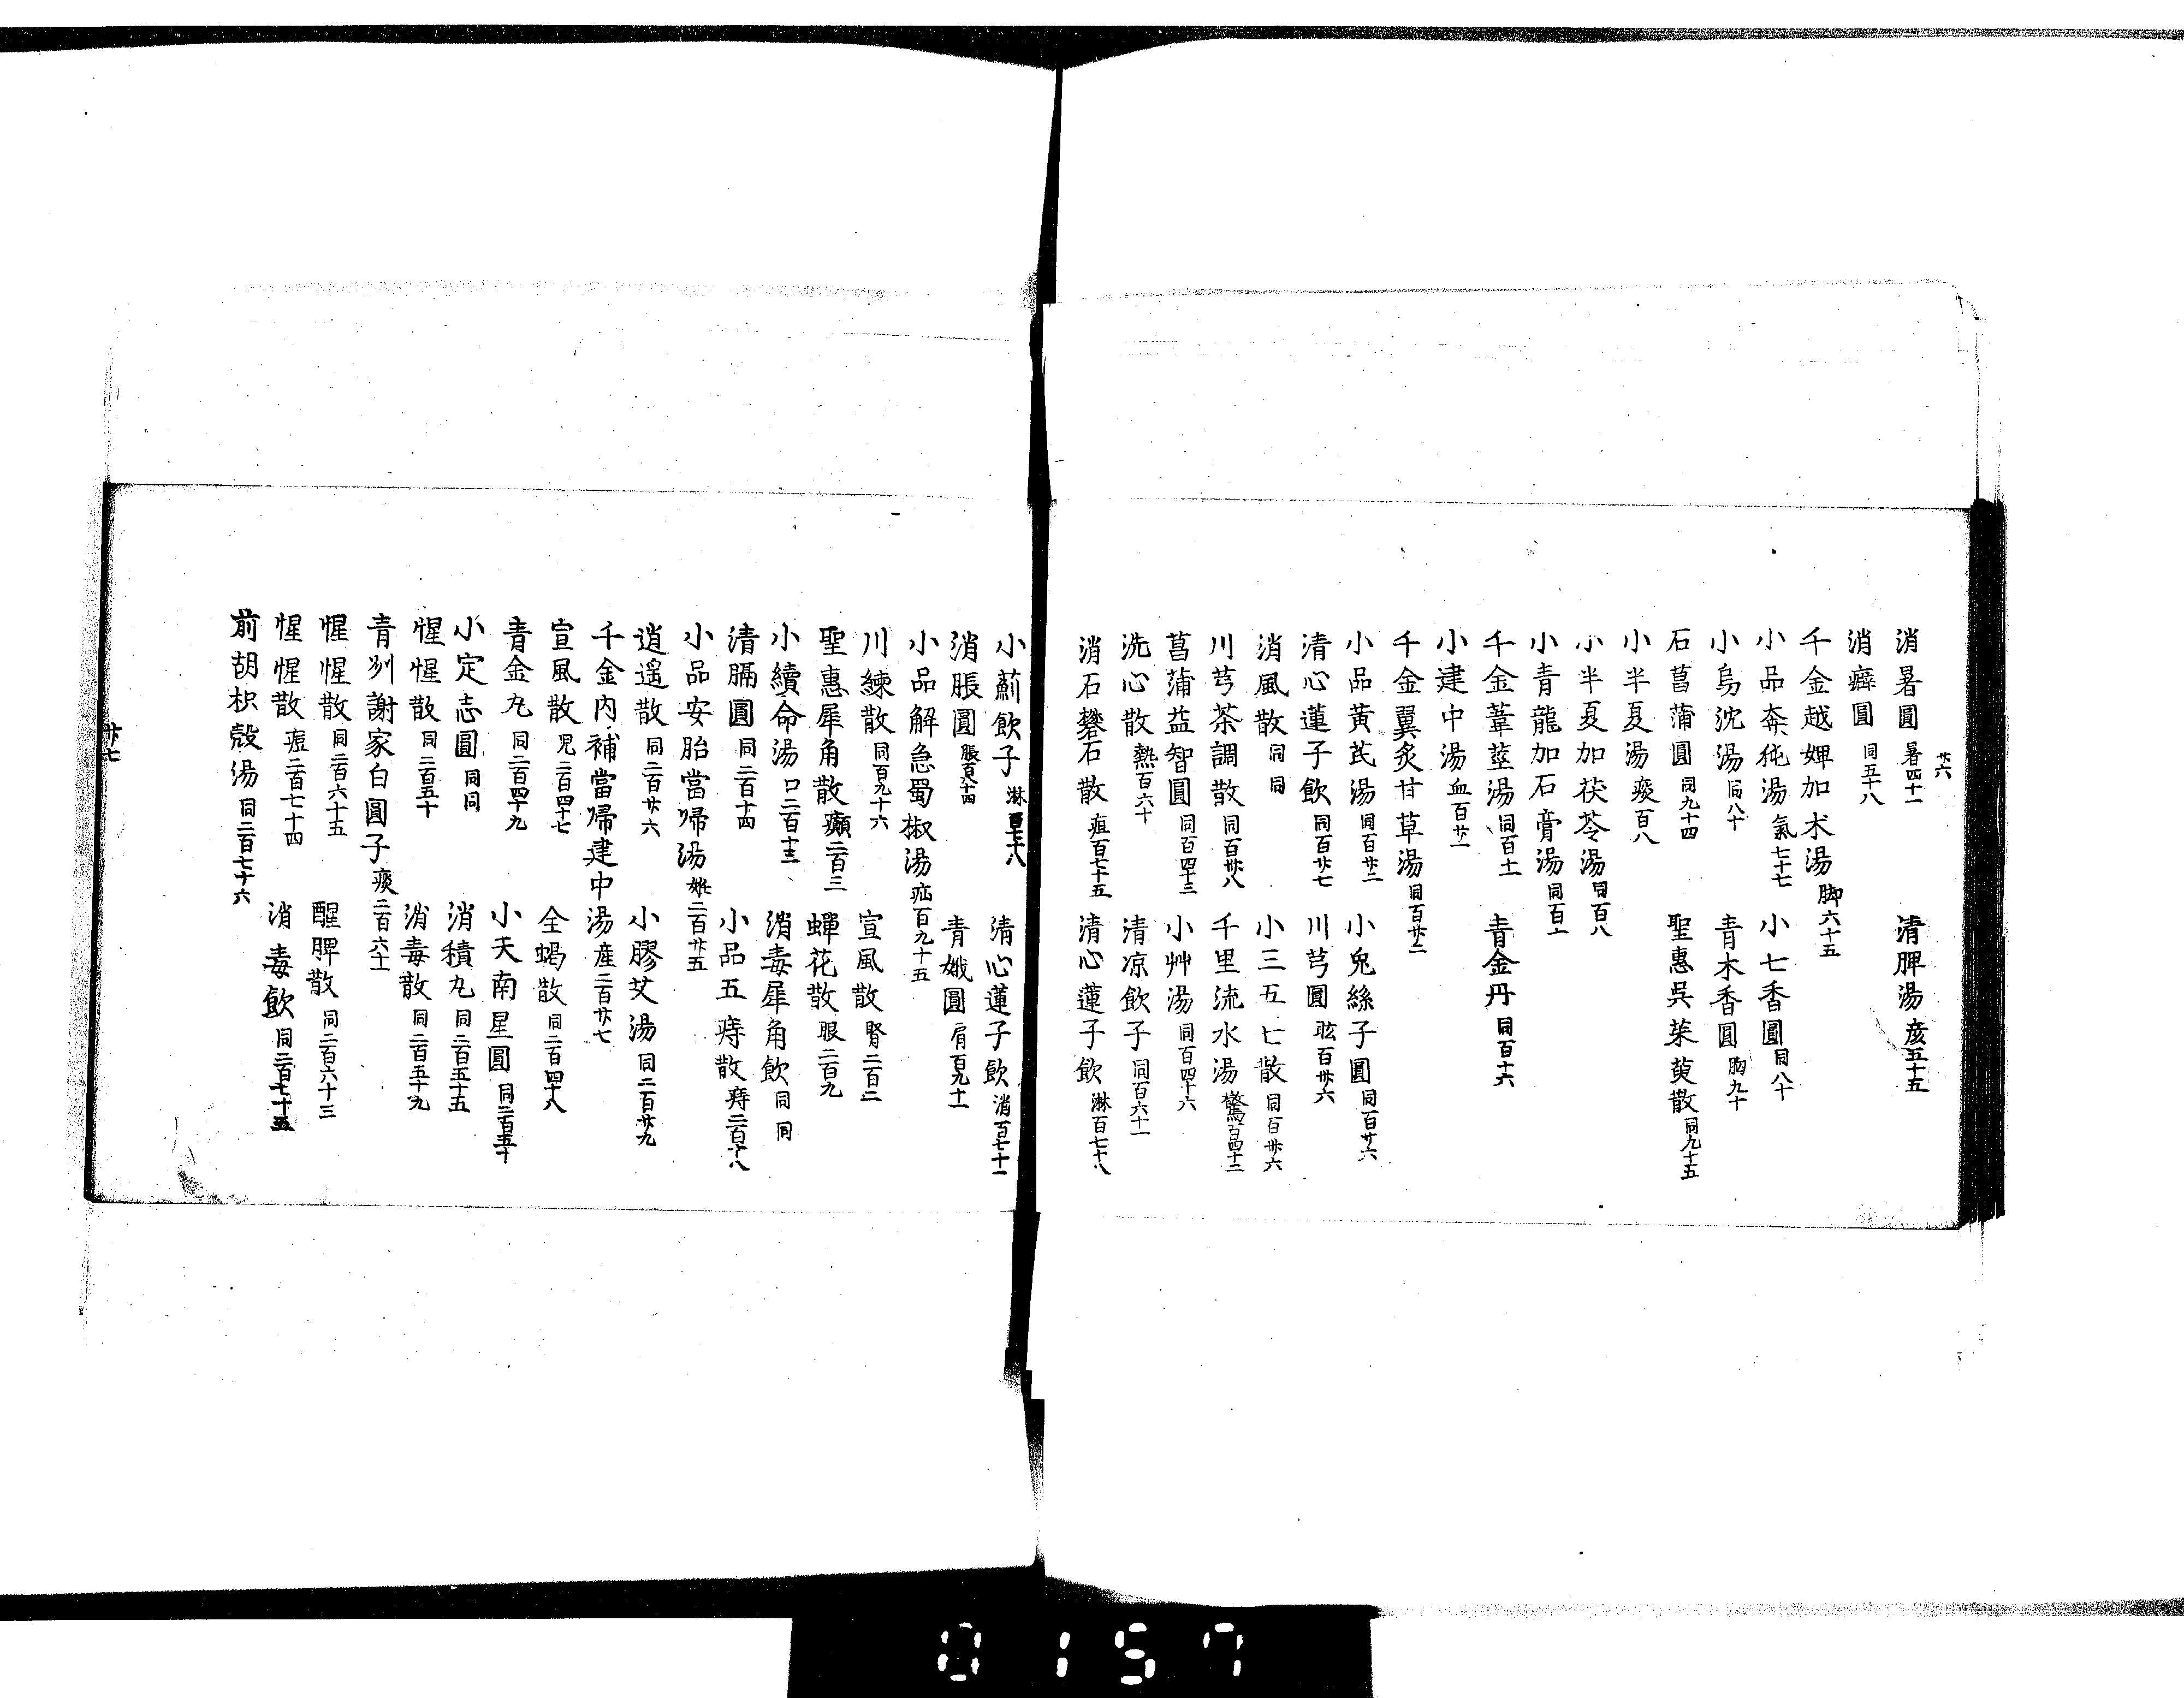 廿六
消暑圓 暑四十一 清脾湯 痎五十五
消癖圓 同五十八
千金越婢加朮湯 脚六十五
小品奔㹠湯 氣七十七 小七香圓 同八十
小烏沈湯 同八十 青木香圓 胸九十
石菖蒲圓 同九十四 聖惠吳茱萸散 同九十五
小半夏湯 痰百八
小半夏加茯苓湯 同百八
小青龍加石膏湯 同百十一
千金葦莖湯 同百十一 青金丹 同百十六
小建中湯 血百廿一
千金翼炙甘草湯 同百廿二
小品黃芪湯 同百廿二 小兔絲子圓 同百廿六
清心蓮子飲 同百廿七 川芎圓 眩百卅六
消風散 同同 小三五七散 同百卅六
川芎茶調散 同百卅八 千里流水湯 驚百四十二
菖蒲益智圓 同百四十三 小艸湯 同百四十六
洗心散 熱百六十 清凉飲子 同百六十一
消石礬石散 疸百七十五 清心蓮子飲 淋百七十八
小薊飲子 淋百七十八 清心蓮子飲 消百七十一
消脹圓 脹百八十四 青娥圓 肩百九十一
小品解急蜀椒湯 疝百九十五
川練散 同百九十六 宣風散 腎二百二
聖惠犀角散 癩二百三 蟬花散 眼二百九
小續命湯 口二百十三 消毒犀角飲 同同
清膈圓 同二百十四 小品五痔散 痔二百十八
小品安胎當歸湯 姙二百廿五
逍遙散 同二百廿六 小膠艾湯 同二百廿九
千金內補當歸建中湯 産二百廿七
宣風散 児二百四十七 全蝎散 同二百四十八
青金丸 同二百四十九 小天南星圓 同二百五十
小定志圓 同同 消積丸 同二百五十五
惺惺散 同二百五十 消毒散 同二百五十九
青州謝家白圓子 痰二百六十
惺惺散 同二百六十五 醒脾散 同二百六十三
惺惺散 痘二百七十四 消毒飲 同二百七十五
前胡枳殼湯 同二百七十六
廿七
0157